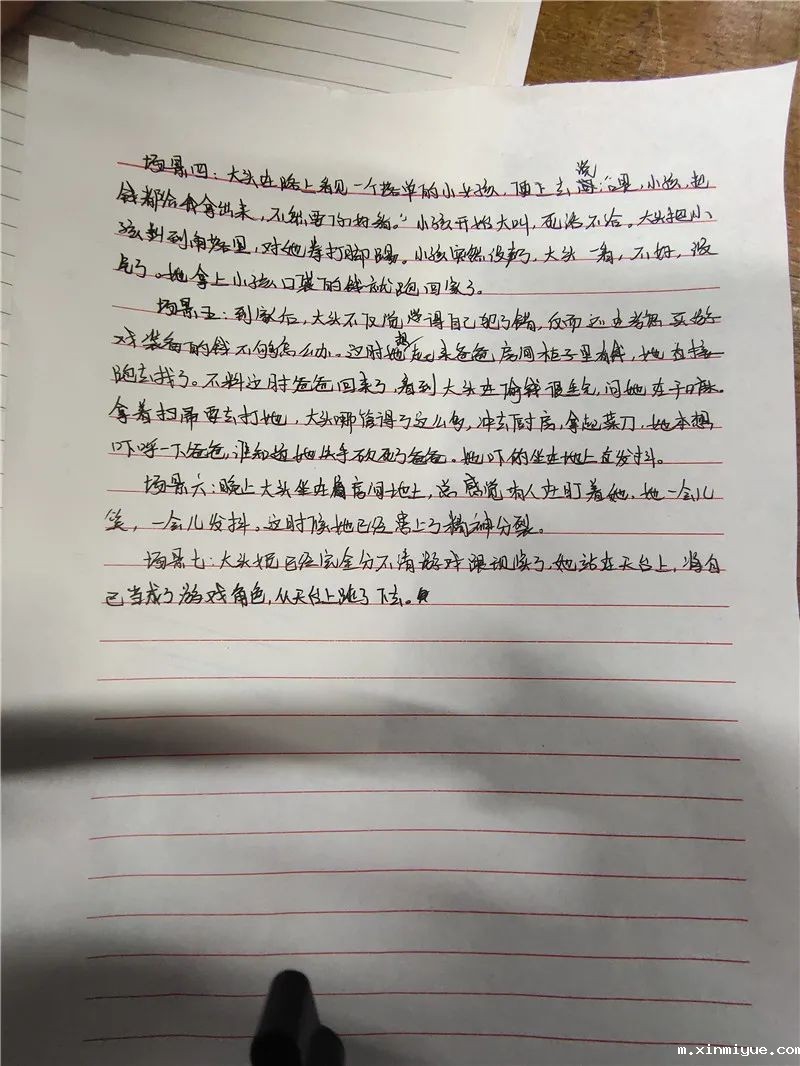 场景四：大头在路上看见一个落单的小女孩，便上去说："喂，小孩，把
钱都给我拿出来，不然要你好看。"小孩开始大叫，死活不给。大头把小
孩到角落里，对她拳打脚踢。小孩突然没声了，大头一看，不好，没
气了。她拿上小孩口袋的钱就跑回家了。
场景五：到家后，大头不仅没觉得自己犯了错，反而还在考虑买游
戏装备的钱不够怎么办。这时她想起来爸爸房间柜子里有钱，她直接
跑去找了。不料这时爸爸回来了，看到大头在偷钱很生气，问她在干嘛。
拿着扫帚要去打她，大头哪管得了这么多，冲去厨房，拿起菜刀，她本想
吓呼一下爸爸，谁知道她失手砍死了爸爸。她吓的坐在地上直发抖。
场景六：晚上大头坐在房间地上，总感觉有人在盯着她，她一会儿
笑，一会儿发抖。这时候她已经患上了精神分裂。
场景七：大头她已经完全分不清游戏跟现实了，她站在天台上，将自
己当成了游戏角色，从天台上跳了下去。
m.xinmiyue.com